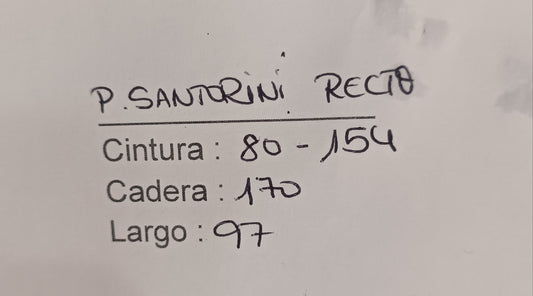 P. SANTORINI RECTO
Cintura : 80 - 154
Cadera : 170
Largo : 97